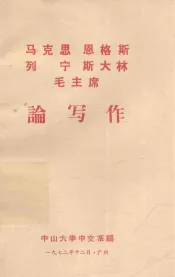 马克思 恩格斯
列 宁 斯大林
毛主席
論写作
中山大学中文系編
一九七二年十二月·广州